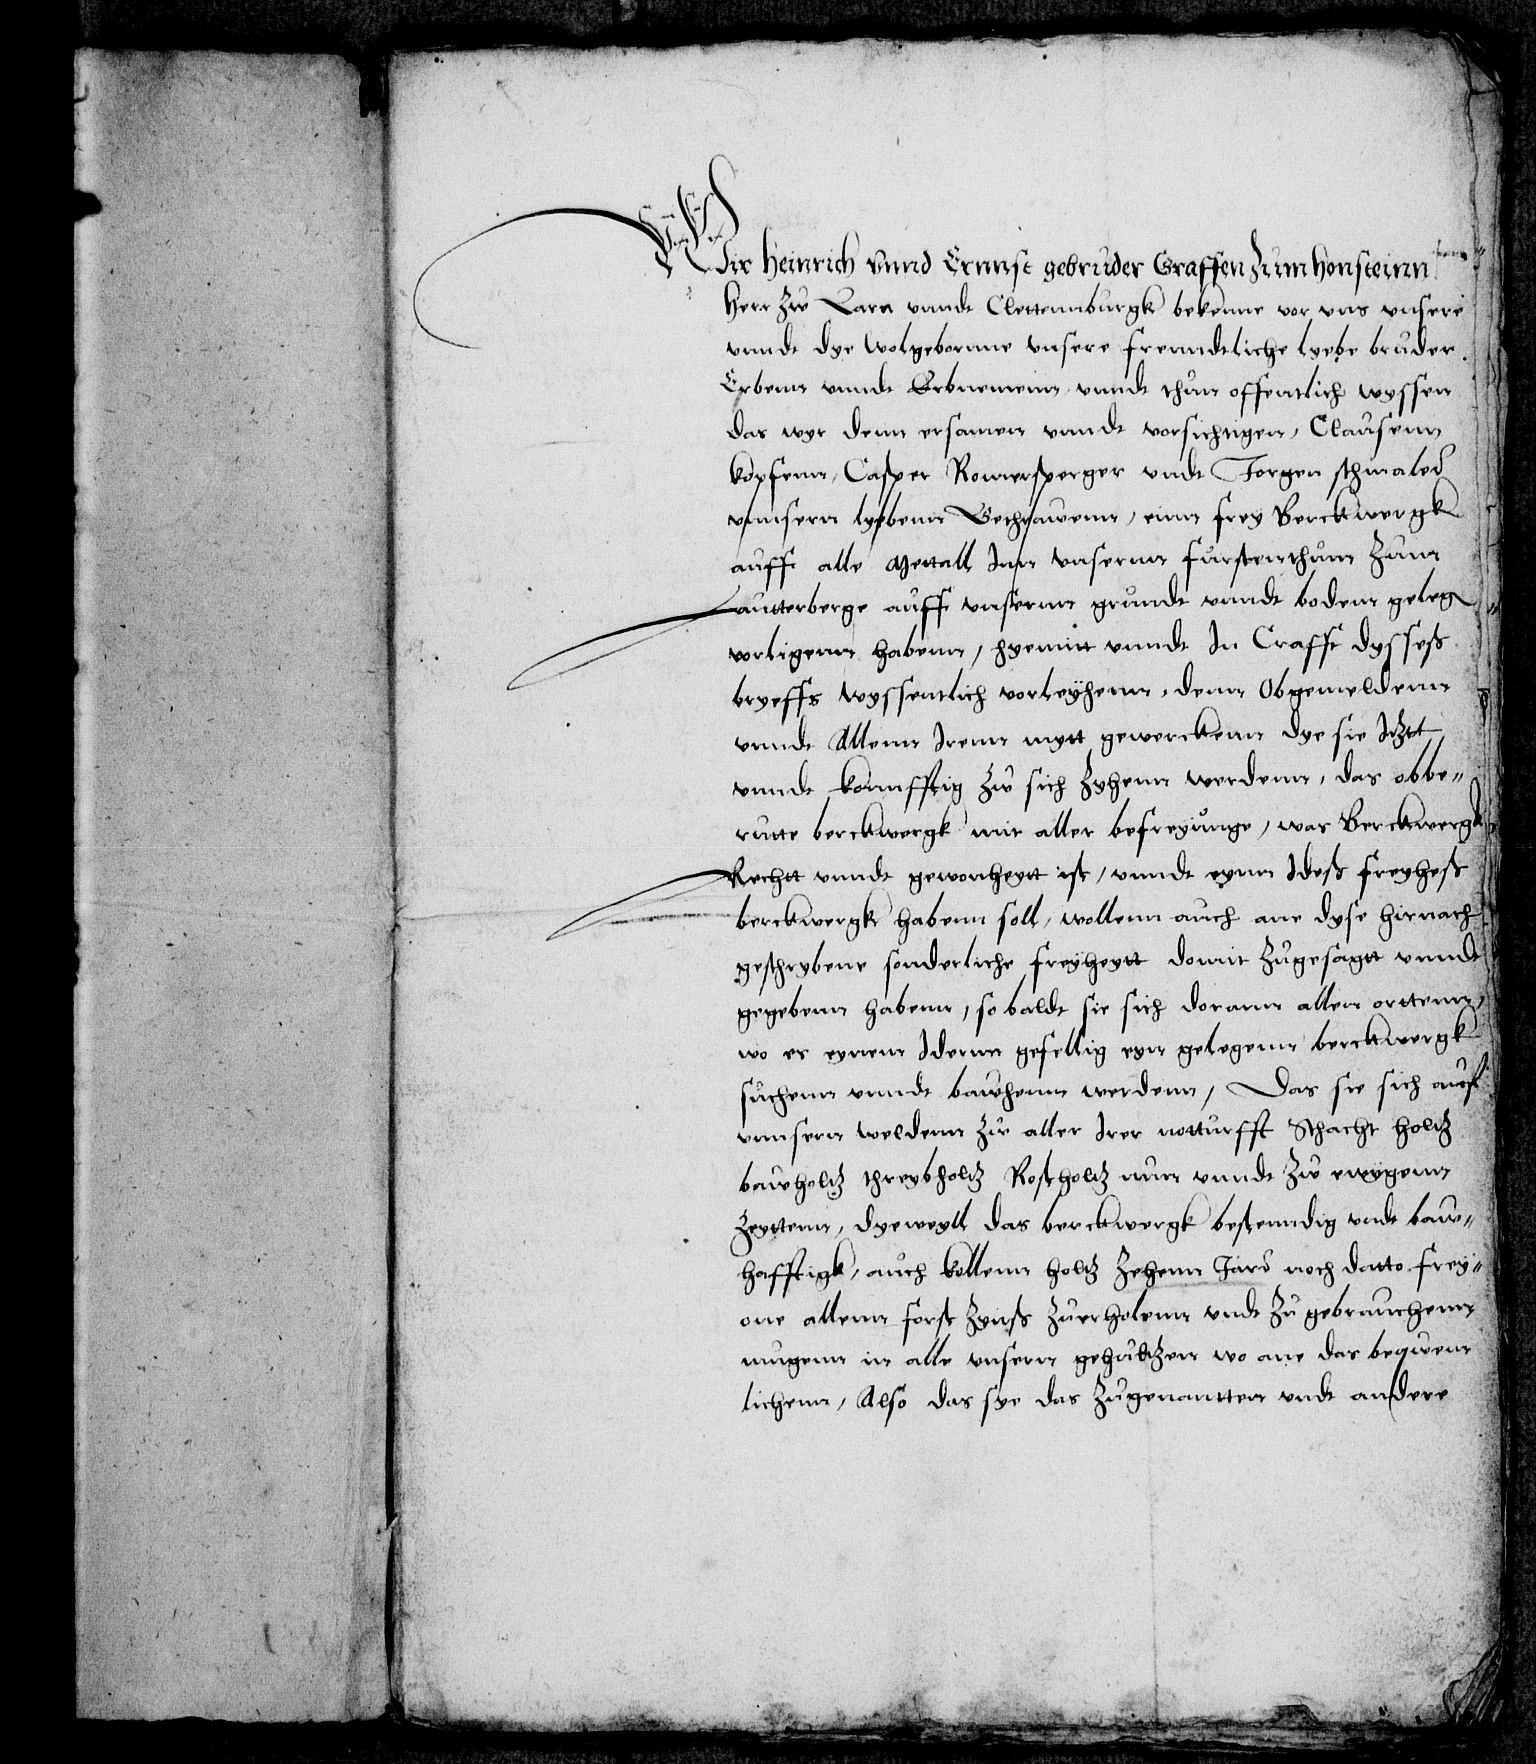 Wir Heinrich vnnd Ernnst gebruder Graffen zum Honsteinn
Herr zw Lara vnndt Clettennburgk bekenne vor vns vnsere
vnndt dye wolgebornne vnsere freundtliche lyebe bruder
Erbenn vnndt Erbnemenn vnndt thun offentlich wyssen
das wyr denn ersamen vnndt vorsichtigen, Clausenn
kopfenn, Casper Romersperger vndt Jorgen schmaled
vnnsern lyebenn Gethrawenn, einn frey Berckwergk
auff alle Mettall Inn vnsernn furstenthum zum
Lautterberge auff vnsernn grundt vnndt boden geleg
vorligenn habenn, hyemitt vnndt In Crafft dysses
bryeffs wyssentlich vorleyhenn, denn Obgemeldenn
vnndt Allenn Irenn mytt gewerckenn dye sie Itzt
vnndt konnfftig zw sich zyhenn werdenn, das obbe¬
rutte berckwergk mit aller befreyunge, was Berckwergk
Rechtt vnndt gewonheytt ist, vnndt eynn Ides freyhes
berckwergk habenn soll, wollenn auch ane dyse hirnach
geschrybene sonderliche freyheytt domit zugesagtt vnndt
gegebenn habenn, so baldt sie sich dorann allen orttenn,
wo es eynem Idenn gefellig eyn gelegenn berckwergk
suchenn vnndt bawhenn werdenn, Das sie sich auff
vnnsern weldenn zw aller Irer notturfft Schacht holtz
bawholtz threybholtz Rostholtz nun vnndt zw ewygenn
zeyttenn, dyeweyll das berckwergk bestenndig vndt baw¬
hafftigk, auch kollenn holtz zehenn Jard noch datto frey¬
one allenn forst zynss zuerholenn vndt zu gebrauchenn
mugenn in alle vnsern gehultzen wo ane das bequem
lichenn, Also das sye das zugenantten vndt andere